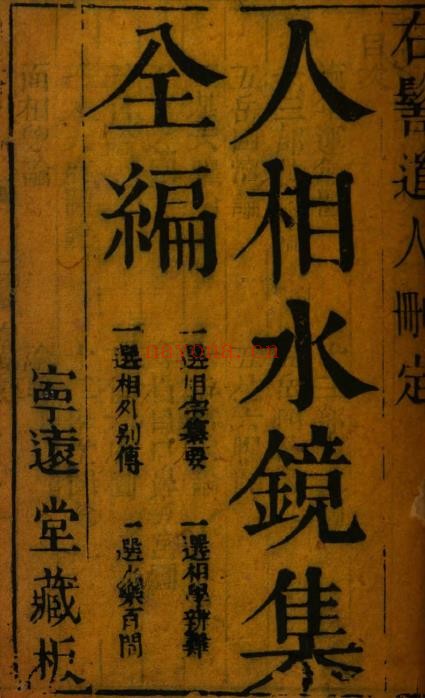 右髻道人刪定
人相水鏡集
全編
一選旧宗纂要
一選相學新難
一選相外別傳
一選水樂百問
寧遠堂藏板